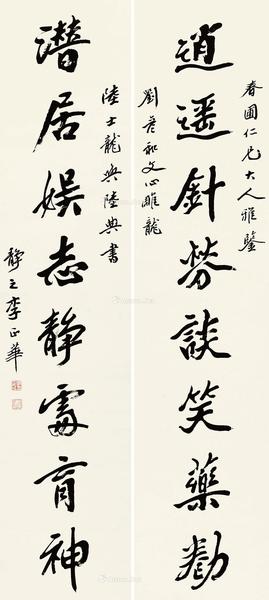 春圃仁兄大人雅鑒
逍遙針勞談笑藥勌
劉彥和文心雕龍
陸士龍與陸典書
潛居娛志靜處育神
靜之李正華